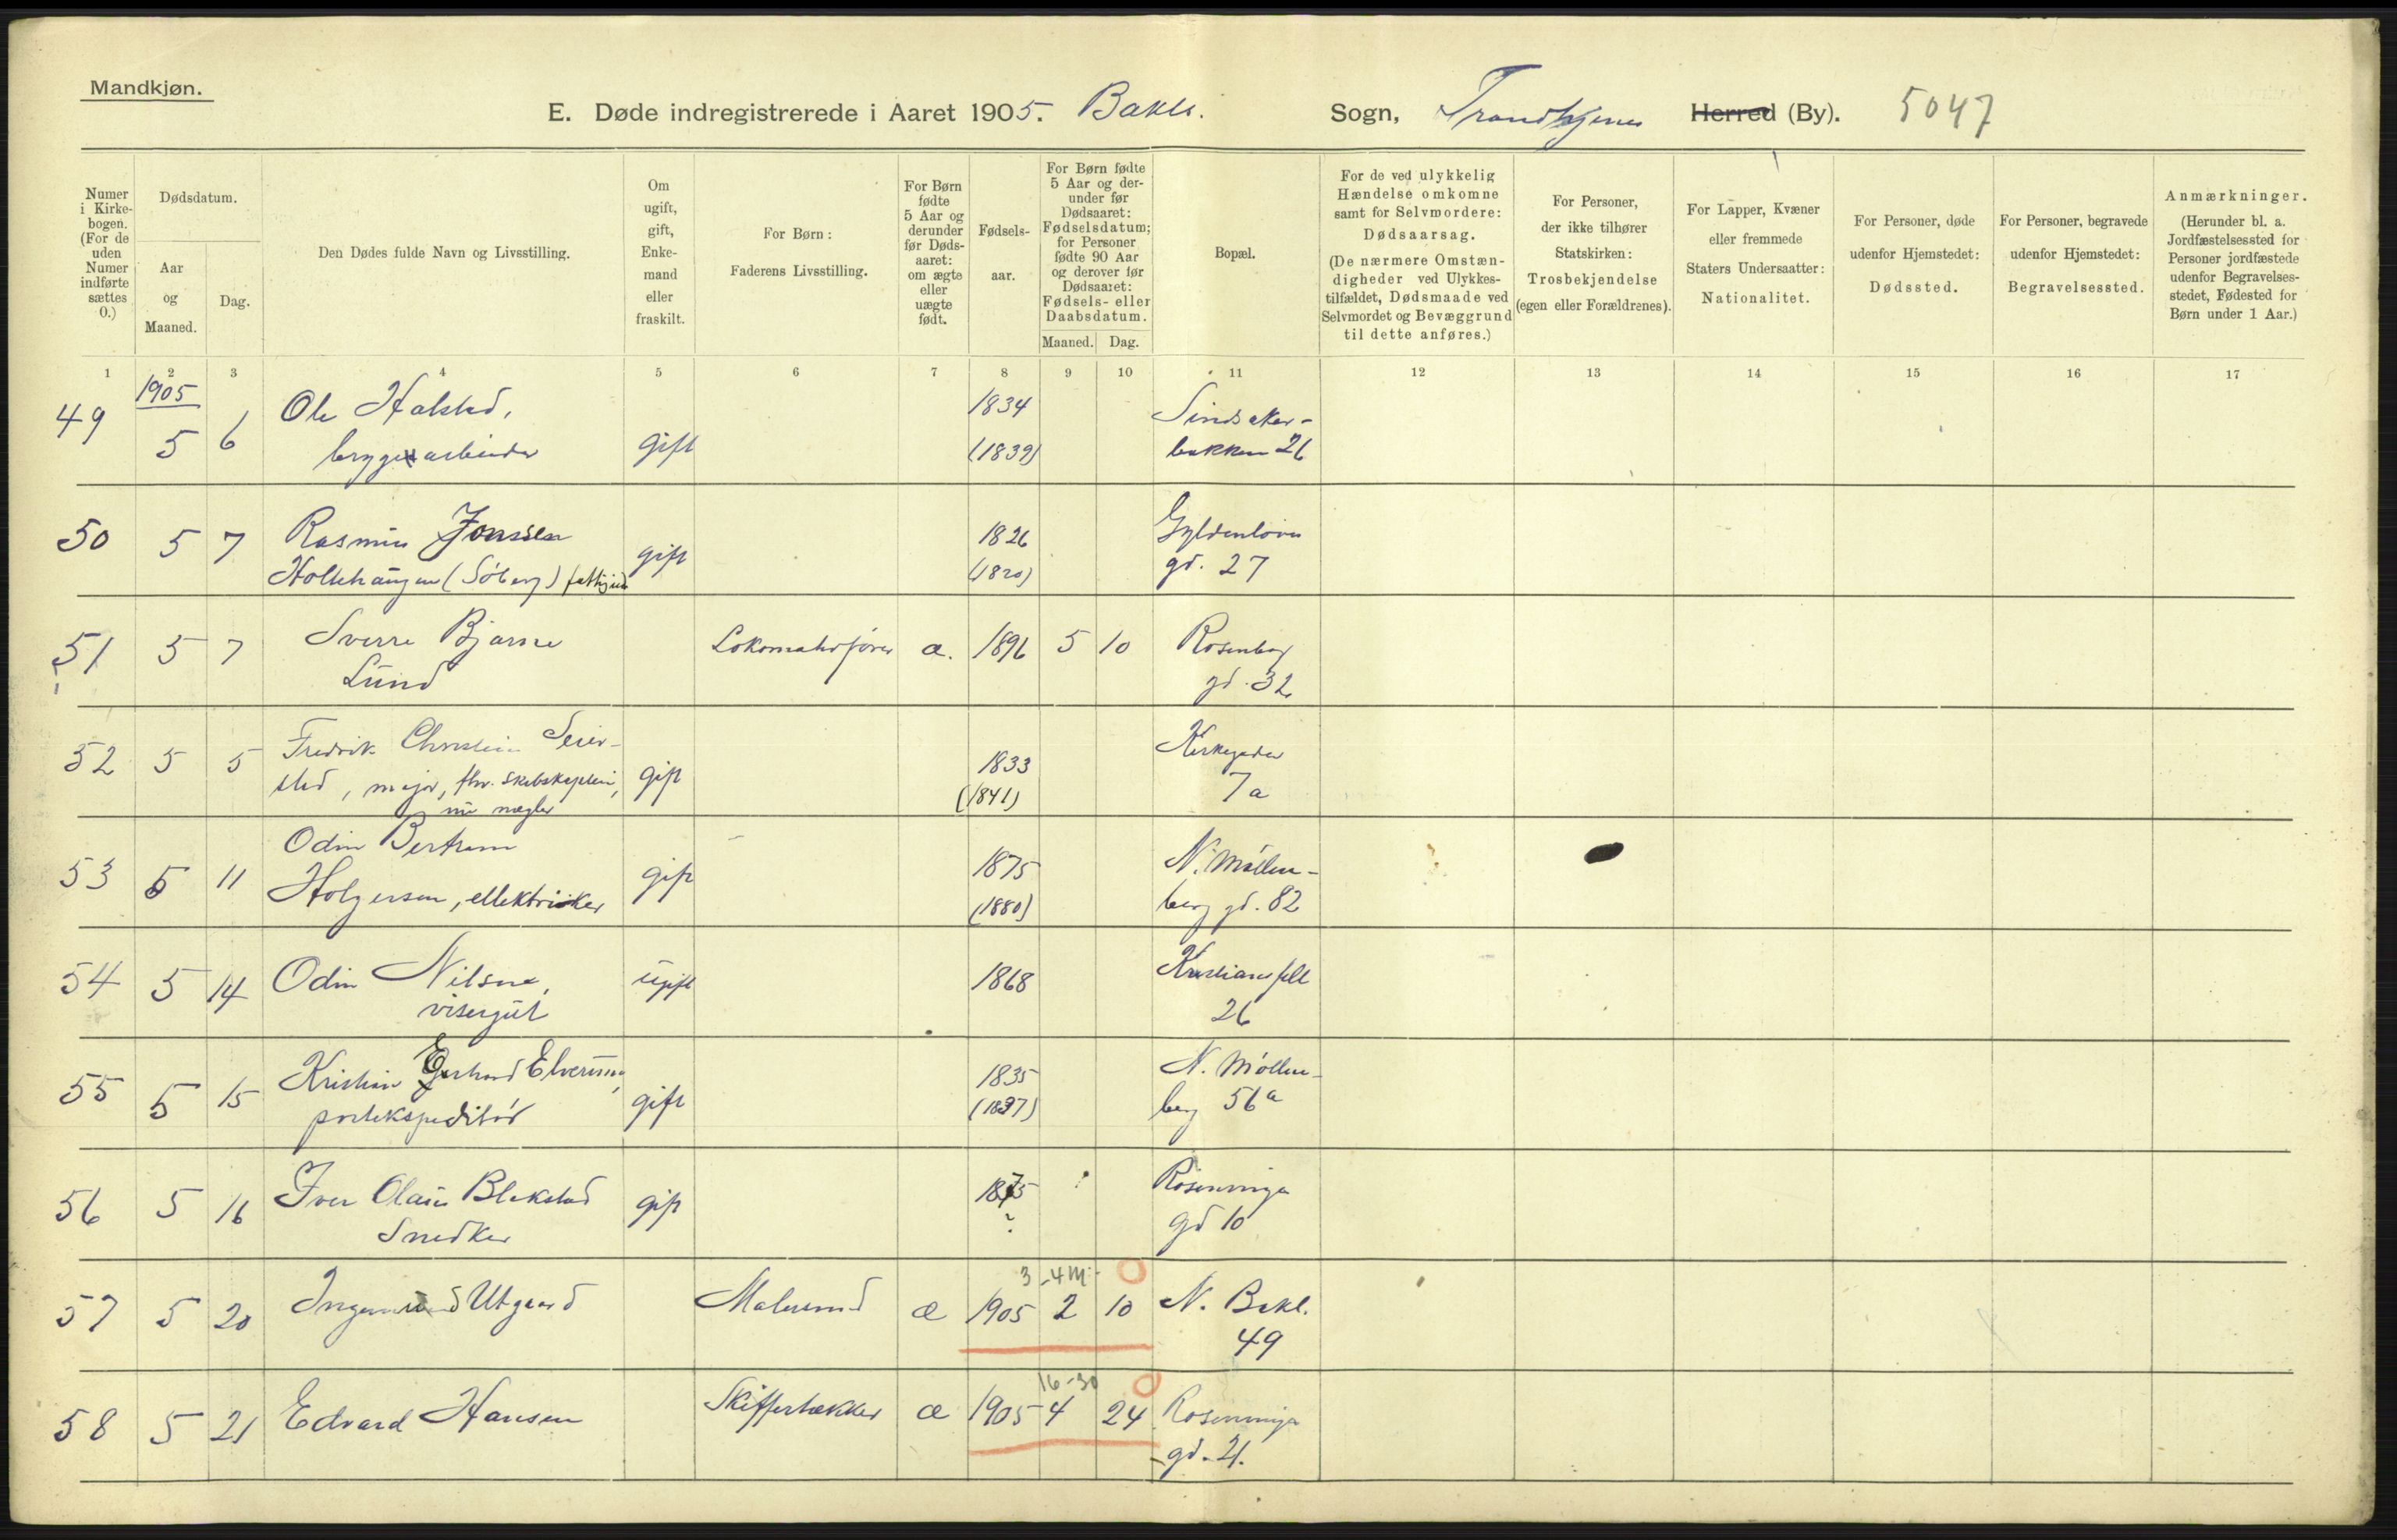 Mandkjøn.
E. Døde indregistrerede i Aaret 1905. Bakle. Sogn, Trondhjems Herred (By). 5047
Numer i Kirkebogen. (For de uden Numer indførte sættes 0.)
Dødsdatum.
Aar og Maaned.
Dag.
Den Dødes fulde Navn og Livsstilling.
Om ugift, gift, Enkemand eller fraskilt.
For Børn:
Faderens Livsstilling.
For Børn fødte 5 Aar og derunder før Dødsaaret: om ægte eller uægte født.
Fødselsaar.
For Børn fødte 5 Aar og derunder før Dødsaaret: Fødselsdatum; for Personer fødte 90 Aar og derover før Dødsaaret: Fødsels- eller Daabsdatum.
Maaned. Dag.
Bopæl.
For de ved ulykkelig Hændelse omkomne samt for Selvmordere: Dødsaarsag.
(De nærmere Omstændigheder ved Ulykkestilfældet, Dødsmaade ved Selvmordet og Bevæggrund til dette anføres.)
For Personer, der ikke tilhører Statskirken: Trosbekjendelse (egen eller Forældrenes).
For Lapper, Kvæner eller fremmede Staters Undersaatter: Nationalitet.
For Personer, døde udenfor Hjemstedet: Dødssted.
For Personer, begravede udenfor Hjemstedet: Begravelsessted.
Anmærkninger.
(Herunder bl. a. Jordfæstelsessted for Personer jordfæstede udenfor Begravelsesstedet, Fødested for Børn under 1 Aar.)
1 2 3 4 5 6 7 8 9 10 11 12 13 14 15 16 17
1905
49 5 6 Ole Halsted, gift 1834 Sindsaker-
bryggearbeider (1839) bakken 26
50 5 7 Rasmus Jonssen gift 1826 Gyldenløves
Holtehaugen (Söberg) (1820) gd. 27
51 5 7 Sverre Bjarne Lokomotivfører æ. 1896 5 10 Rosenborg
Lund gd. 32
52 5 5 Fredrik Christian Seier- gift 1833 Kirkegaden
sted, major, fhv. skibskaptein, (1841) 7a
nu mægler
53 5 11 Odin Bertram gift 1875 N. Møllen-
Holgersen, ellektriker (1880) berg gd. 82
54 5 14 Odin Nilsen, ugift 1868 Kristiansfelt
visergut 26
55 5 15 Kristian Gerhard Elverum, gift 1835 N. Møllen-
postekspeditör (1837) berg 56a
56 5 16 Iver Olaus Blekstad gift 1875 Rosenvinge
Snedker ? gd 10
3-4 m.
57 5 20 Ingemund Utgaard Malersvend æ 1905 2 10 N. Bakl.
49
16-30
58 5 21 Edvard Hansen Skiffertækker æ 1905 4 24 Rosenvinge
gd. 21.